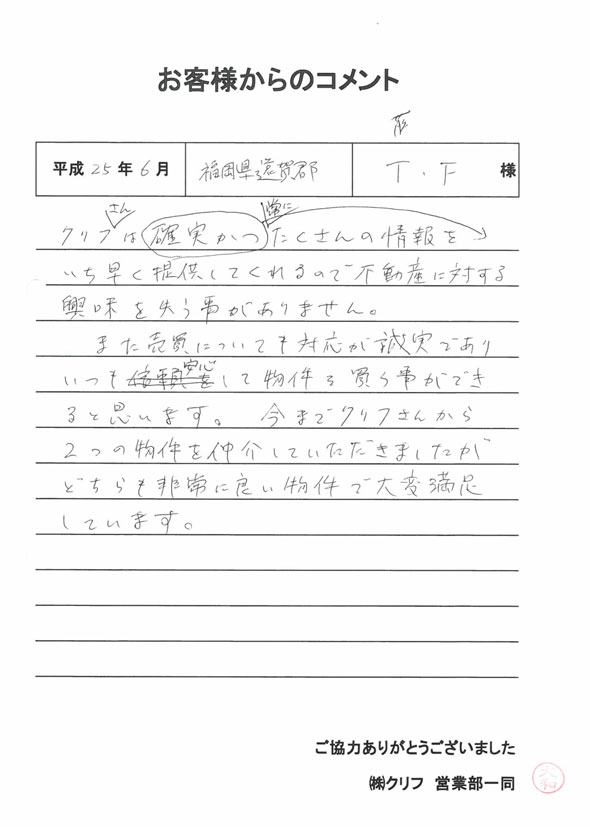 お客様からのコメント
平成25年6月 福岡県遠賀郡 T.F 様
さん 常に
クリフは確実かつたくさんの情報を
いち早く提供してくれるので不動産に対する
興味を失う事がありません。
また売買についても対応が誠実であり
安心
いつも信頼をして物件を買う事ができ
ると思います。 今までクリフさんから
2つの物件を仲介していただきましたが
どちらも非常に良い物件で大変満足
しています。
ご協力ありがとうございました
㈱クリフ 営業部一同